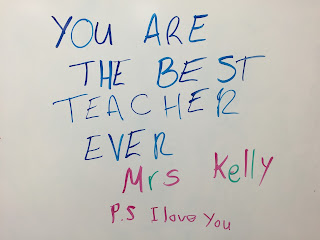 YOU ARE
THE BEST
TEACHER
EVER
Mrs Kelly
P.S I love You